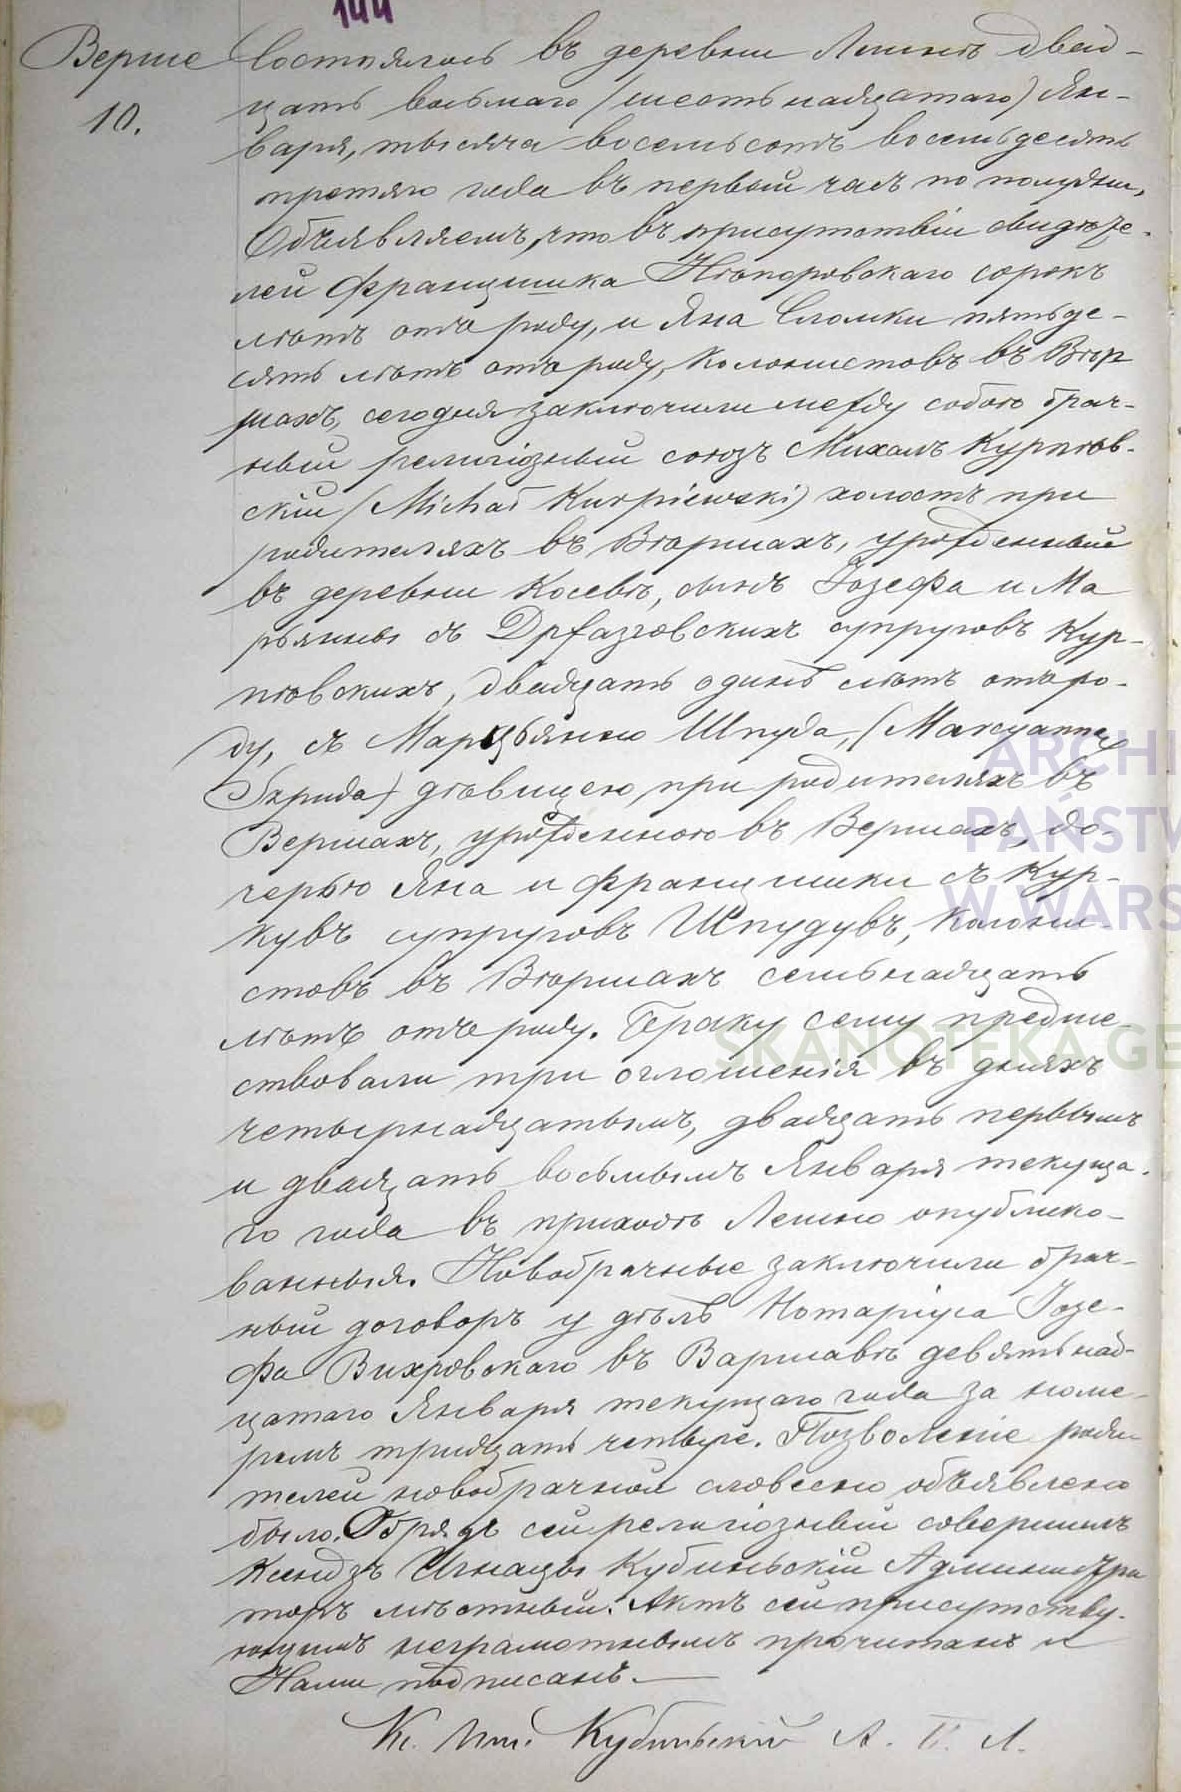 144
Верше Состоялось въ деревни Лешнѣ двад-
10. цать восьмаго (шестьнадцатаго) Ян-
варя, тысяча восемьсотъ восемьдесятъ
третяго года въ первый часъ по полудни,
Объявляемъ, что въ присутствіи свидѣте-
лей Францишка Нѣпоровскаго сорокъ
лѣтъ отъ роду, и Яна Сломки пятьде-
сятъ лѣтъ отъ роду, колонистовъ въ Вѣр
шахъ, сегодня заключили между собою брач-
ный религіозный союзъ Михалъ Курпѣв-
скій (Michał Kurpiewski) холостъ при
родителяхъ въ Вѣршахъ, урожденный
въ деревни Косевѣ, сынъ Іозефа и Ма
рьянны съ Држазговскихъ супруговъ Кур-
пѣвскихъ, двадцать одинъ лѣтъ отъ ро-
ду, съ Марцьянною Шпуда, (Marcyanna
Szpuda) дѣвицею, при родителяхъ въ
Вершахъ, урожденною въ Вершахъ, до-
черью Яна и Францишки съ Кур-
кувъ супруговъ Шпудувъ, колони-
стовъ въ Вѣршахъ семьнадцать
лѣтъ отъ роду. Браку сему предше
ствовали три оглошенія въ дняхъ
четырнадцатымъ, двадцать первымъ
и двадцать восьмымъ Января текуща-
го года въ приходѣ Лешно опублико-
ванныя. Новобрачные заключили брач-
ный договоръ у дѣлъ Нотаріуса Іозе-
фа Вихровскаго въ Варшавѣ девятьнад-
цатаго Января текущаго года за номе-
ромъ тридцать четыре. Позволеніе роди
телей новобрачной словесно объявлено
было. Обрядъ сей религіозный совершилъ
Ксендзъ Игнацы Кубиньскій Администра
торъ мѣстный. Актъ сей присутству-
ющимъ неграмотнымъ прочитанъ и
Нами подписанъ.
Кс. Игн. Кубиньскій А. П. Л.
ARCHI
PAŃSTW
W WARS
SKANOTEKA GE